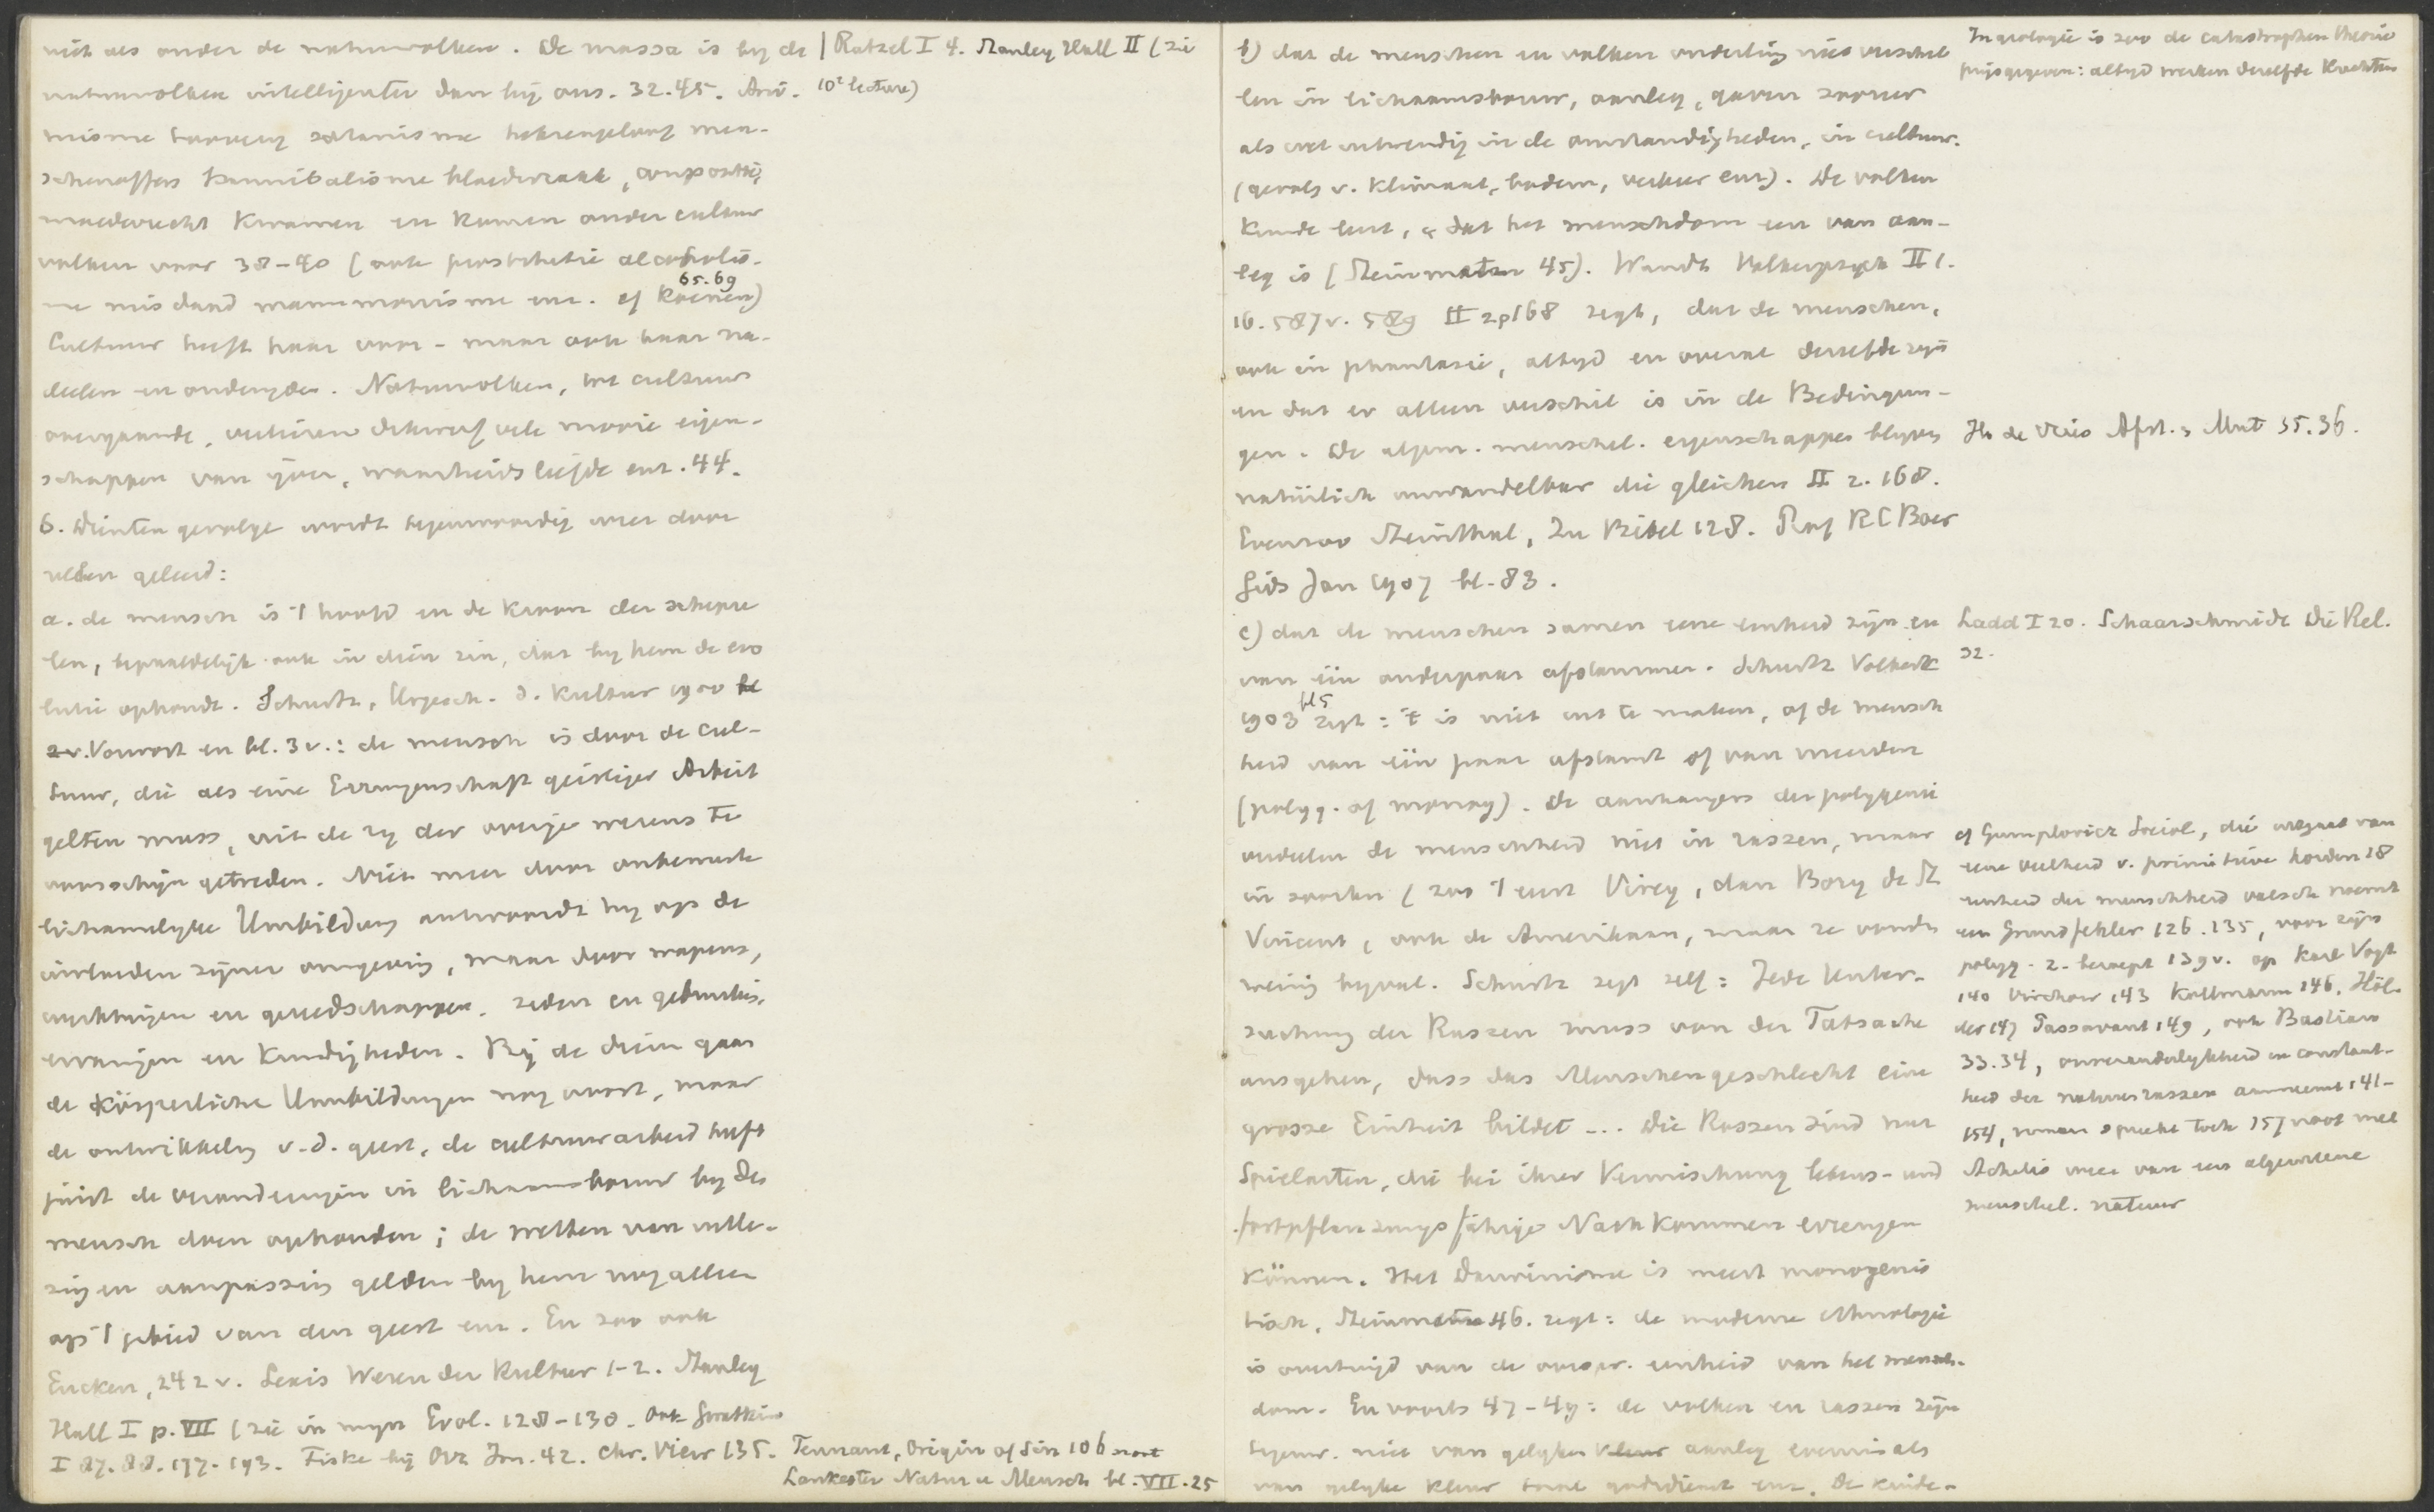 niet als onder de natuurvolken. De massa is by de
natuurvolken intelligenter dan bij ons. 32.45. Ani-
misme satanisme men-
schenoffers kannibalisme bloedwraak,
moederrecht kwamen en komen onder cultuur
volken voor 38-40 (ook prostitutie alcoholis-
me enz. cf Koenen) 65.69
Cultuur heeft haar voor- maar ook haar na-
deelen en onderzyden. Natuurvolken, tot cultuur
overgaande, verliezen dikwerf vele mooie eigen-
schappen van yver, waarheidsliefde enz. 44.
Ratzel I 4. Stanley Hall II (zie
10e lecture)
6. Dientengevolge wordt tegenwoordig weer door
velen geleerd:
a. de mensch is 't hoofd en de kroon der scheppe
len, bepaaldelijk ook in dien zin, dat by hem de evo
lutie ophoudt. Schurtz, Urgesch. d. Kultur 1900 bl
2v. Vorwort en bl. 3v.: de mensch is door de cul-
tuur, die als eine Errungenschaft geistiger Arbeit
gelten muss, uit de ry der overige wezens te
voorschijn getreden. Niet meer door onbewuste
lichamelyke Umbildung antwoordt hy op de
invloeden zyner omgeving, maar door wapens,
werktuigen en gereedschappen. zeden en gebruiken,
ervaringen en kundigheden. Bij de dieren gaan
de Körperliche Umbildungen nog voort, maar
de ontwikkeling v. d. geest, de cultuurarbeid heeft
juist de veranderingen in lichaamsbouw by den
mensch doen ophouden; de wetten van
en aanpassing gelden by hem nog alleen
op 't gebied van den geest enz. En zoo ook
Eucken, 242 v. Lexis Wesen der Kultur 1-2. Stanley
Hall I p. VII (zie in myn Evol. 128-130. Ook
I 87. 88. 177. 193. Fiske bij Orr Im. 42. Chr. View 135. Tennant, Origin of Sin 106 noot
Lankester Natur u Mensch bl. VII. 25
b) dat de menschen en volken onderling niet verschil
len in lichaamsbouw, aanleg, gaven zoozeer
als wel uitwendig in de omstandigheden, in cultuur.
(gevolg v. klimaat, bodem, verkeer enz). De volken
kunde leert, dat het menschdom een van aan-
leg is (Steinmetz 45). Wundt Volkerpsych II 1.
16. 587v. 589 II 2 p168 zegt, dat de menschen,
ook in phantasie, altyd en overal dezelfde zyn
en dat er alleen verschil is in de Bedingun-
gen. De algem. menschel. eigenschappen blyven
natürlich unwandelbar die gleichen II 2. 168.
Evenzoo Steinthal, Zu Bibel 128. Prof RC Boer
Gids Jan 1907 bl. 83.
In geologie is zoo de catastrophen theorie
prijsgegeven: altyd werken dezelfde krachten
H. de Vries Afst. Mut 35.36.
c) dat de menschen samen eene eenheid zijn en
van één ouderpaar afstammen. Schurtz Volkerk
1903 bl 5 zegt: 't is niet uit te maken, of de mensch
heid van één paar afstamt of van meerdere
(polyg. of monog). De aanhangers der polygenie
verdeelen de menschheid niet in rassen, maar
in soorten (zoo 't eerst Virey, dan Bory de St
Vincent, ook de Amerikaan, maar ze vonden
weinig byval. Schurtz zegt zelf: Jede Unter-
suchung der Rassen muss von der Tatsache
ausgehen, dass das Menschengeschlecht eine
grosse Einheit bildet ... Die Rassen sind nur
Spielarten, die bei ihrer Vermischung lebens- und
fortpflanzungsfähige Nachkommen erzeugen
können. Het Darwinisme is meest monogenis
tisch. Steinmetz 46. zegt: de moderne ethnologie
is overtuigd van de oorspr. eenheid van het mensch-
dom. En voorts 47-49: de volken en rassen zijn
tegenw. niet van gelyken aanleg evenmin als
van gelyke kleur taal godsdienst enz. De kinde-
Ladd I 20. Schaarschmidt Die Rel.
32.
cf Gumplovicz Sociol, die uitgaat van
eene veelheid v. primitieve horden 18
eenheid der menschheid valsch noemt
een Grundfehler 126.135, voor zijn
polyg. z. beroept 139v. op Karl Vogt
140 Virchow 143 Kollmann 146, Höl-
der 147 Passavant 149, ook Bastian
33.34, onveranderlykheid en constant-
heid der natuurrassen aanneemt 141-
154, maar spreekt toch 157 noot met
Achelis mee van een algemeene
menschel. natuur